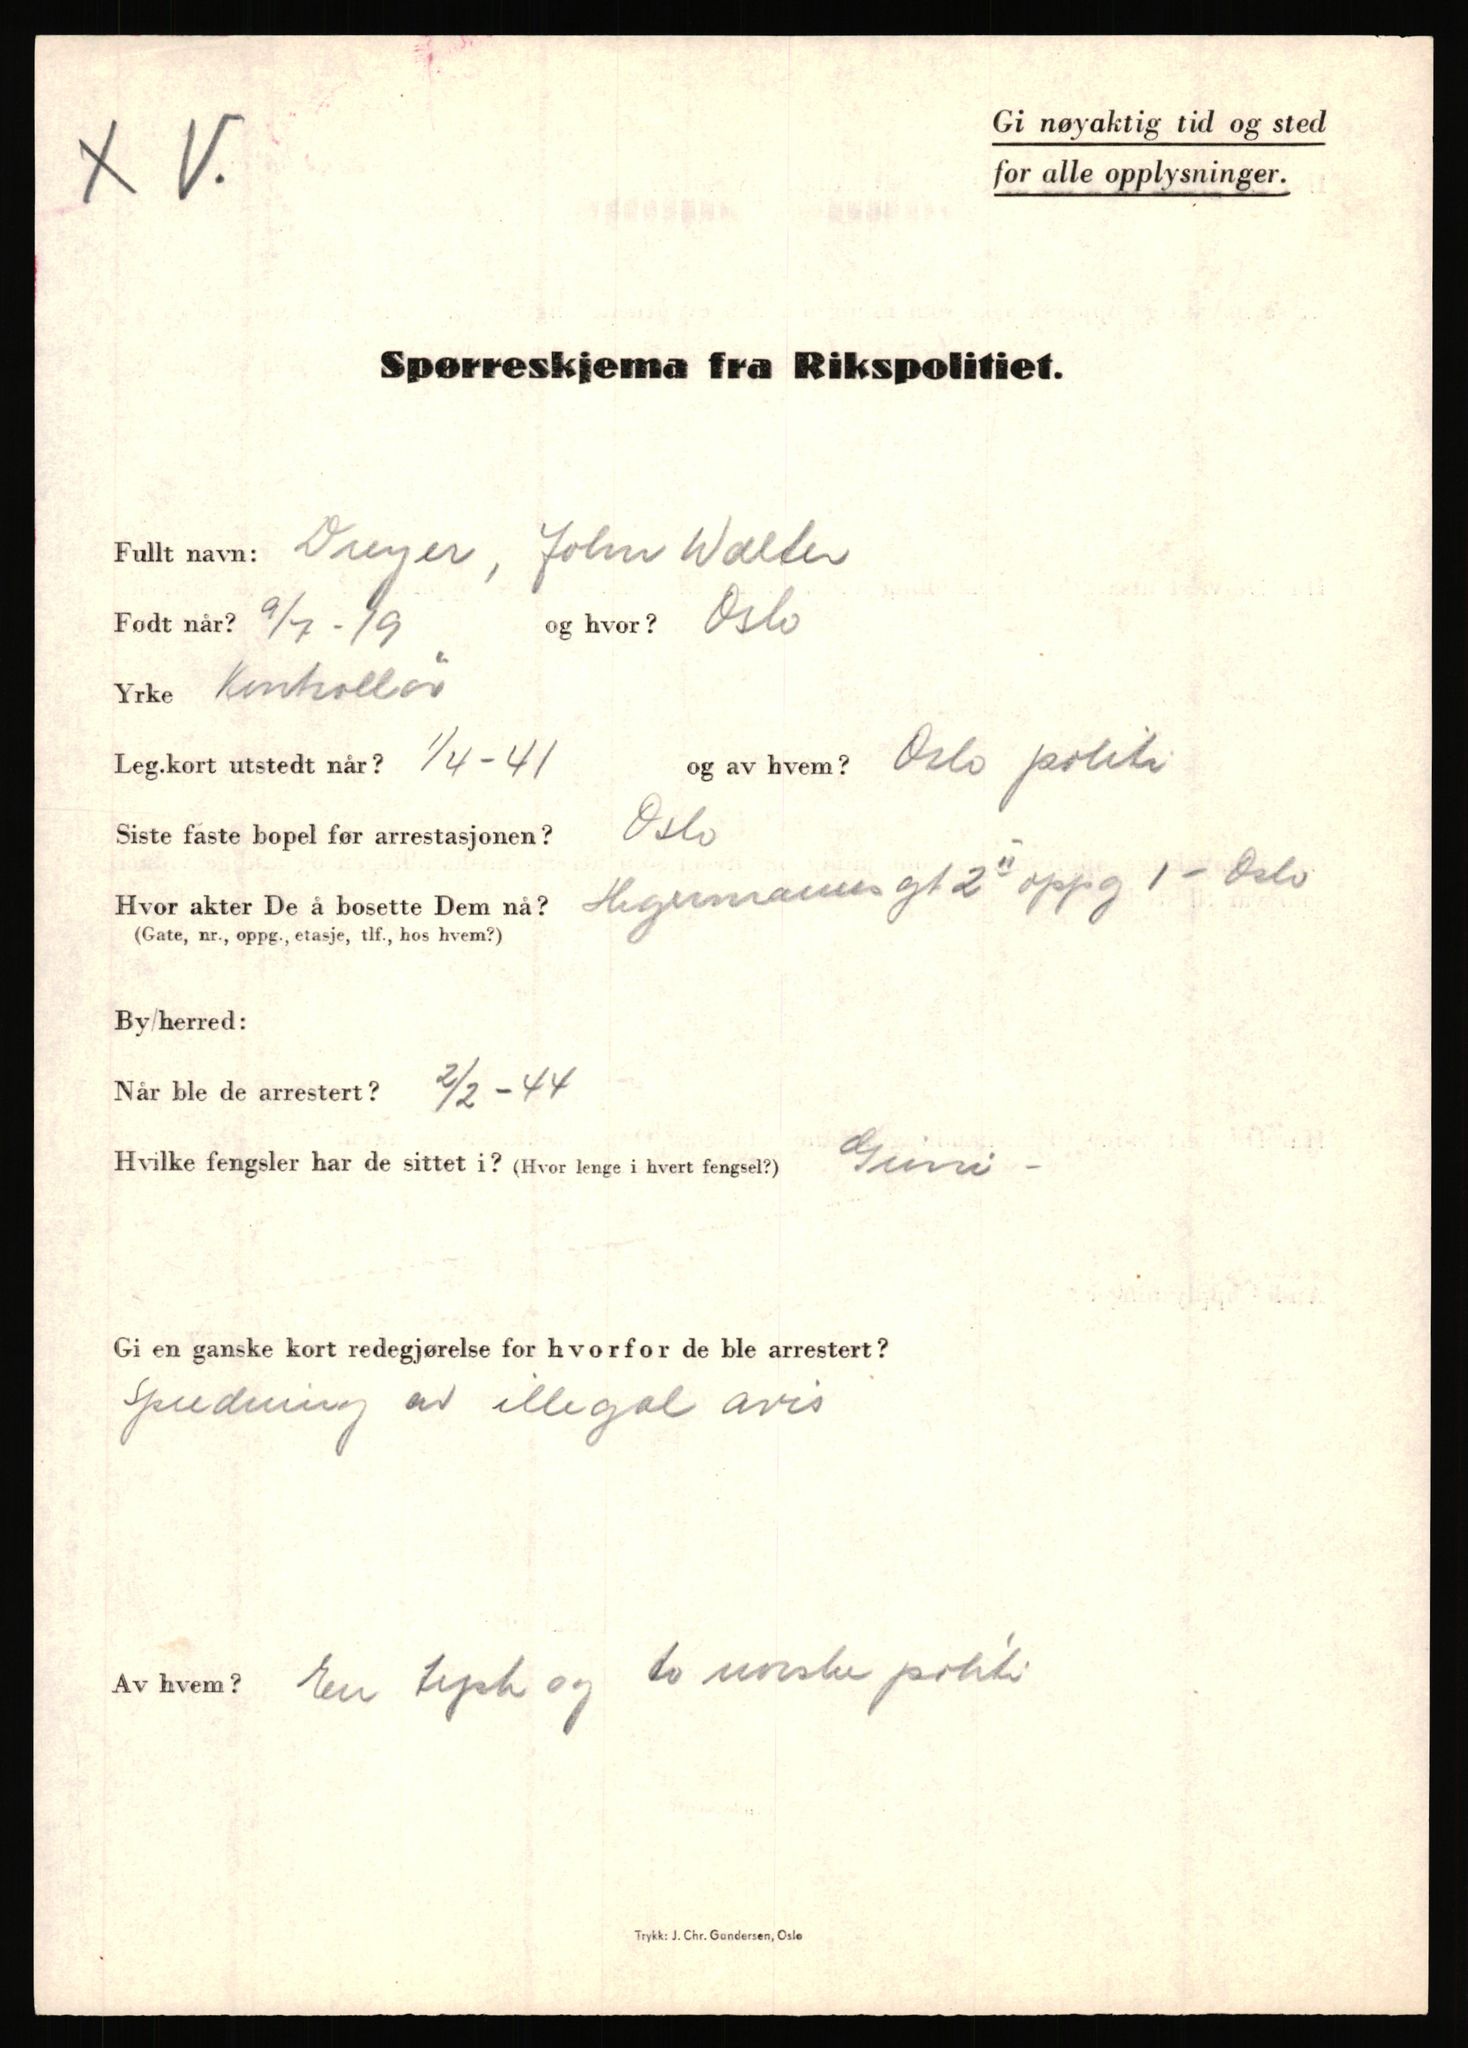 X V.
Gi nøyaktig tid og sted
for alle opplysninger.
Spørreskjema fra Rikspolitiet.
Fullt navn: Dreyer, John Walter
Født når? 9/7-19 og hvor? Oslo
Yrke Kontrollør
Leg.kort utstedt når? 1/4-41 og av hvem? Oslo politi
Siste faste bopel før arrestasjonen? Oslo
Hvor akter De å bosette Dem nå? Hegermanns gt 2 II oppg 1 - Oslo
(Gate, nr., oppg., etasje, tlf., hos hvem?)
By/herred:
Når ble de arrestert? 2/2-44
Hvilke fengsler har de sittet i? (Hvor lenge i hvert fengsel?) Grini -
Gi en ganske kort redegjørelse for hvorfor de ble arrestert?
Spredning av illegal avis
Av hvem? En tysk og to norske politi
Trykk: J. Chr. Gundersen, Oslo